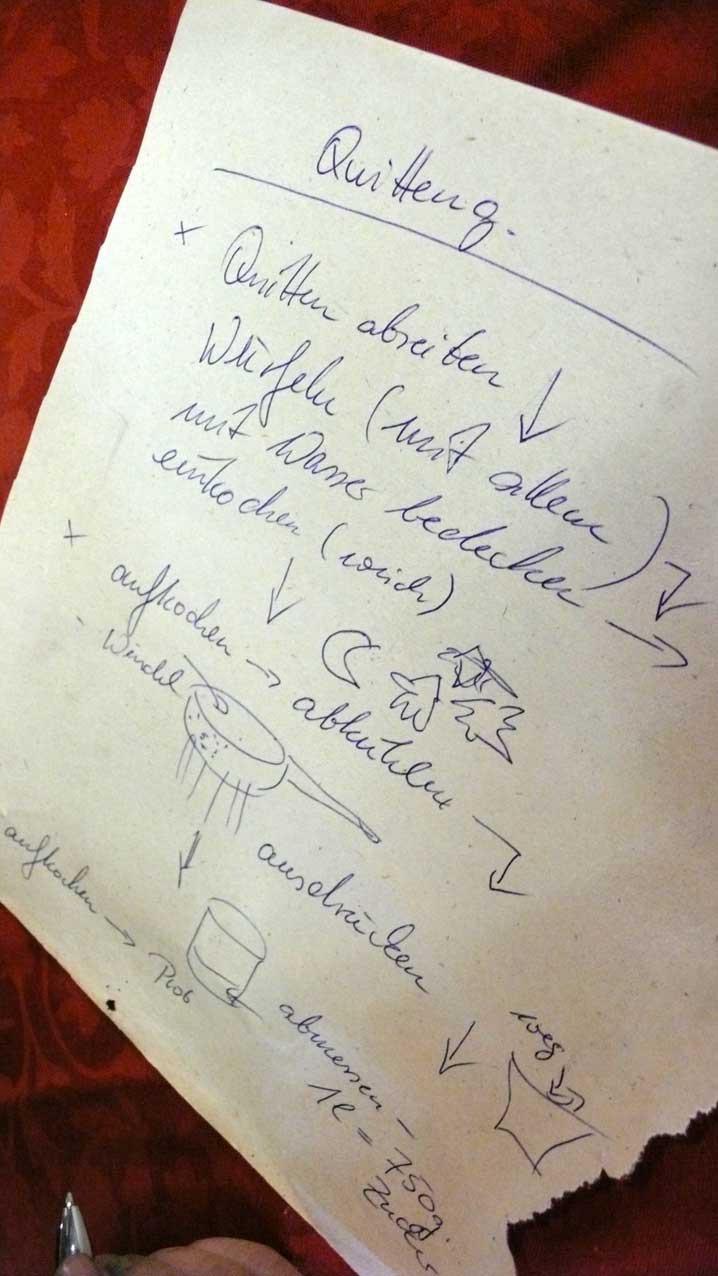 Quitteng.
+ Quitten abreiben ↓
Würfeln (mit allem)
mit Wasser bedecken →
einkochen (weich)
+ aufkochen → abkühlen
- Windel
ausdrücken
aufkochen → Prob
weg
abmessen -
1l = 750g.
Zucker